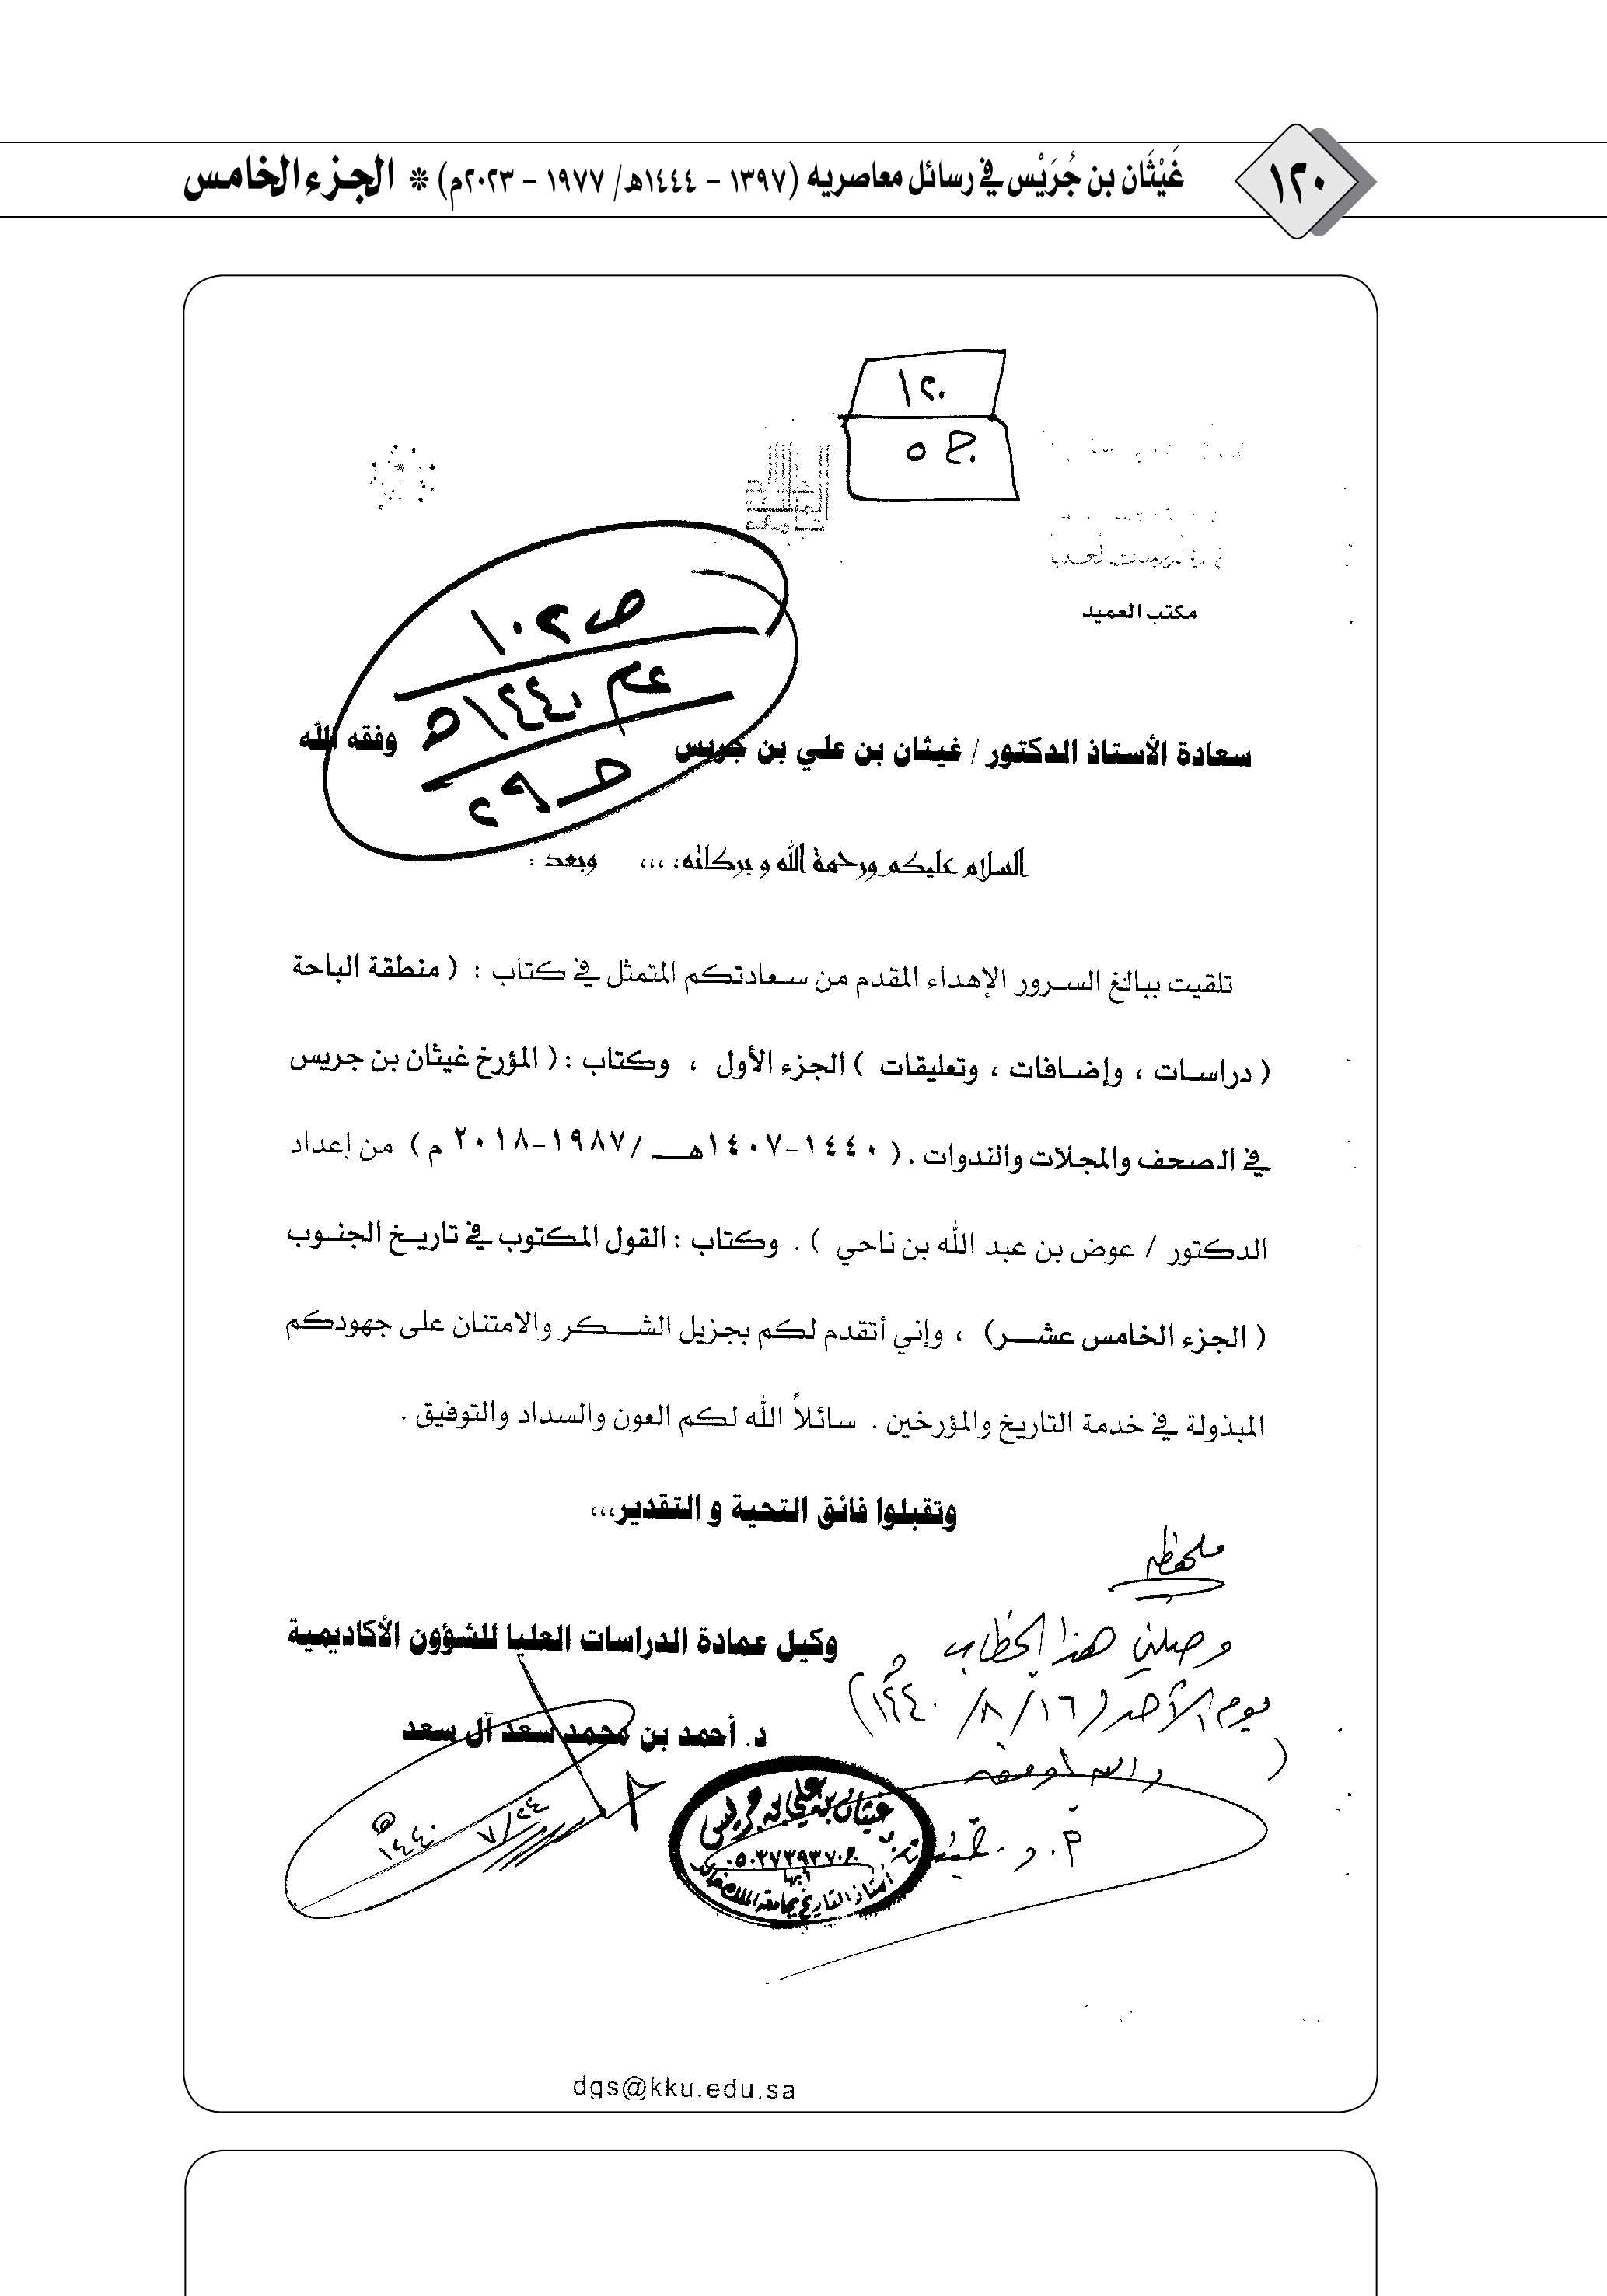 ١٢٠
غَيْثَان بن جُرَيْس في رسائل معاصريه (١٣٩٧ – ١٤٤٤هـ/ ١٩٧٧ – ٢٠٢٣م) * الجزء الخامس
١٢٠
ج ٥
مكتب العميد
ص ١٠٢
عام ١٤٤٠هـ
حـ ٢٩
سعادة الأستاذ الدكتور / غيثان بن علي بن جريس وفقه الله
السلام عليكم ورحمة الله و بركاته، ،،، وبعد :
تلقيت ببالغ السرور الإهداء المقدم من سعادتكم المتمثل في كتاب : ( منطقة الباحة
( دراسات ، وإضافات ، وتعليقات ) الجزء الأول ، وكتاب : ( المؤرخ غيثان بن جريس
في الصحف والمجلات والندوات . ( ١٤٤٠-١٤٠٧هـ /١٩٨٧-٢٠١٨ م ) من إعداد
الدكتور / عوض بن عبد الله بن ناحي ) . وكتاب : القول المكتوب في تاريخ الجنوب
( الجزء الخامس عشر) ، وإني أتقدم لكم بجزيل الشكر والامتنان على جهودكم
المبذولة في خدمة التاريخ والمؤرخين . سائلاً الله لكم العون والسداد والتوفيق .
وتقبلوا فائق التحية و التقدير،،،
ملحوظه
وصلني هذا الخطاب
يوم الأحد (١٦/ ٨/ ١٤٤٠)
والله الموفق
أ. د. غيثان
وكيل عمادة الدراسات العليا للشؤون الأكاديمية
د. أحمد بن محمد سعد آل سعد
٧/٢٤
١٤٤٠هـ
غيثان بن علي بن جريس
ج٠٥٠٣٧٣٩٣٧٠
أبها
أستاذ التاريخ بجامعة الملك خالد
dgs@kku.edu.sa